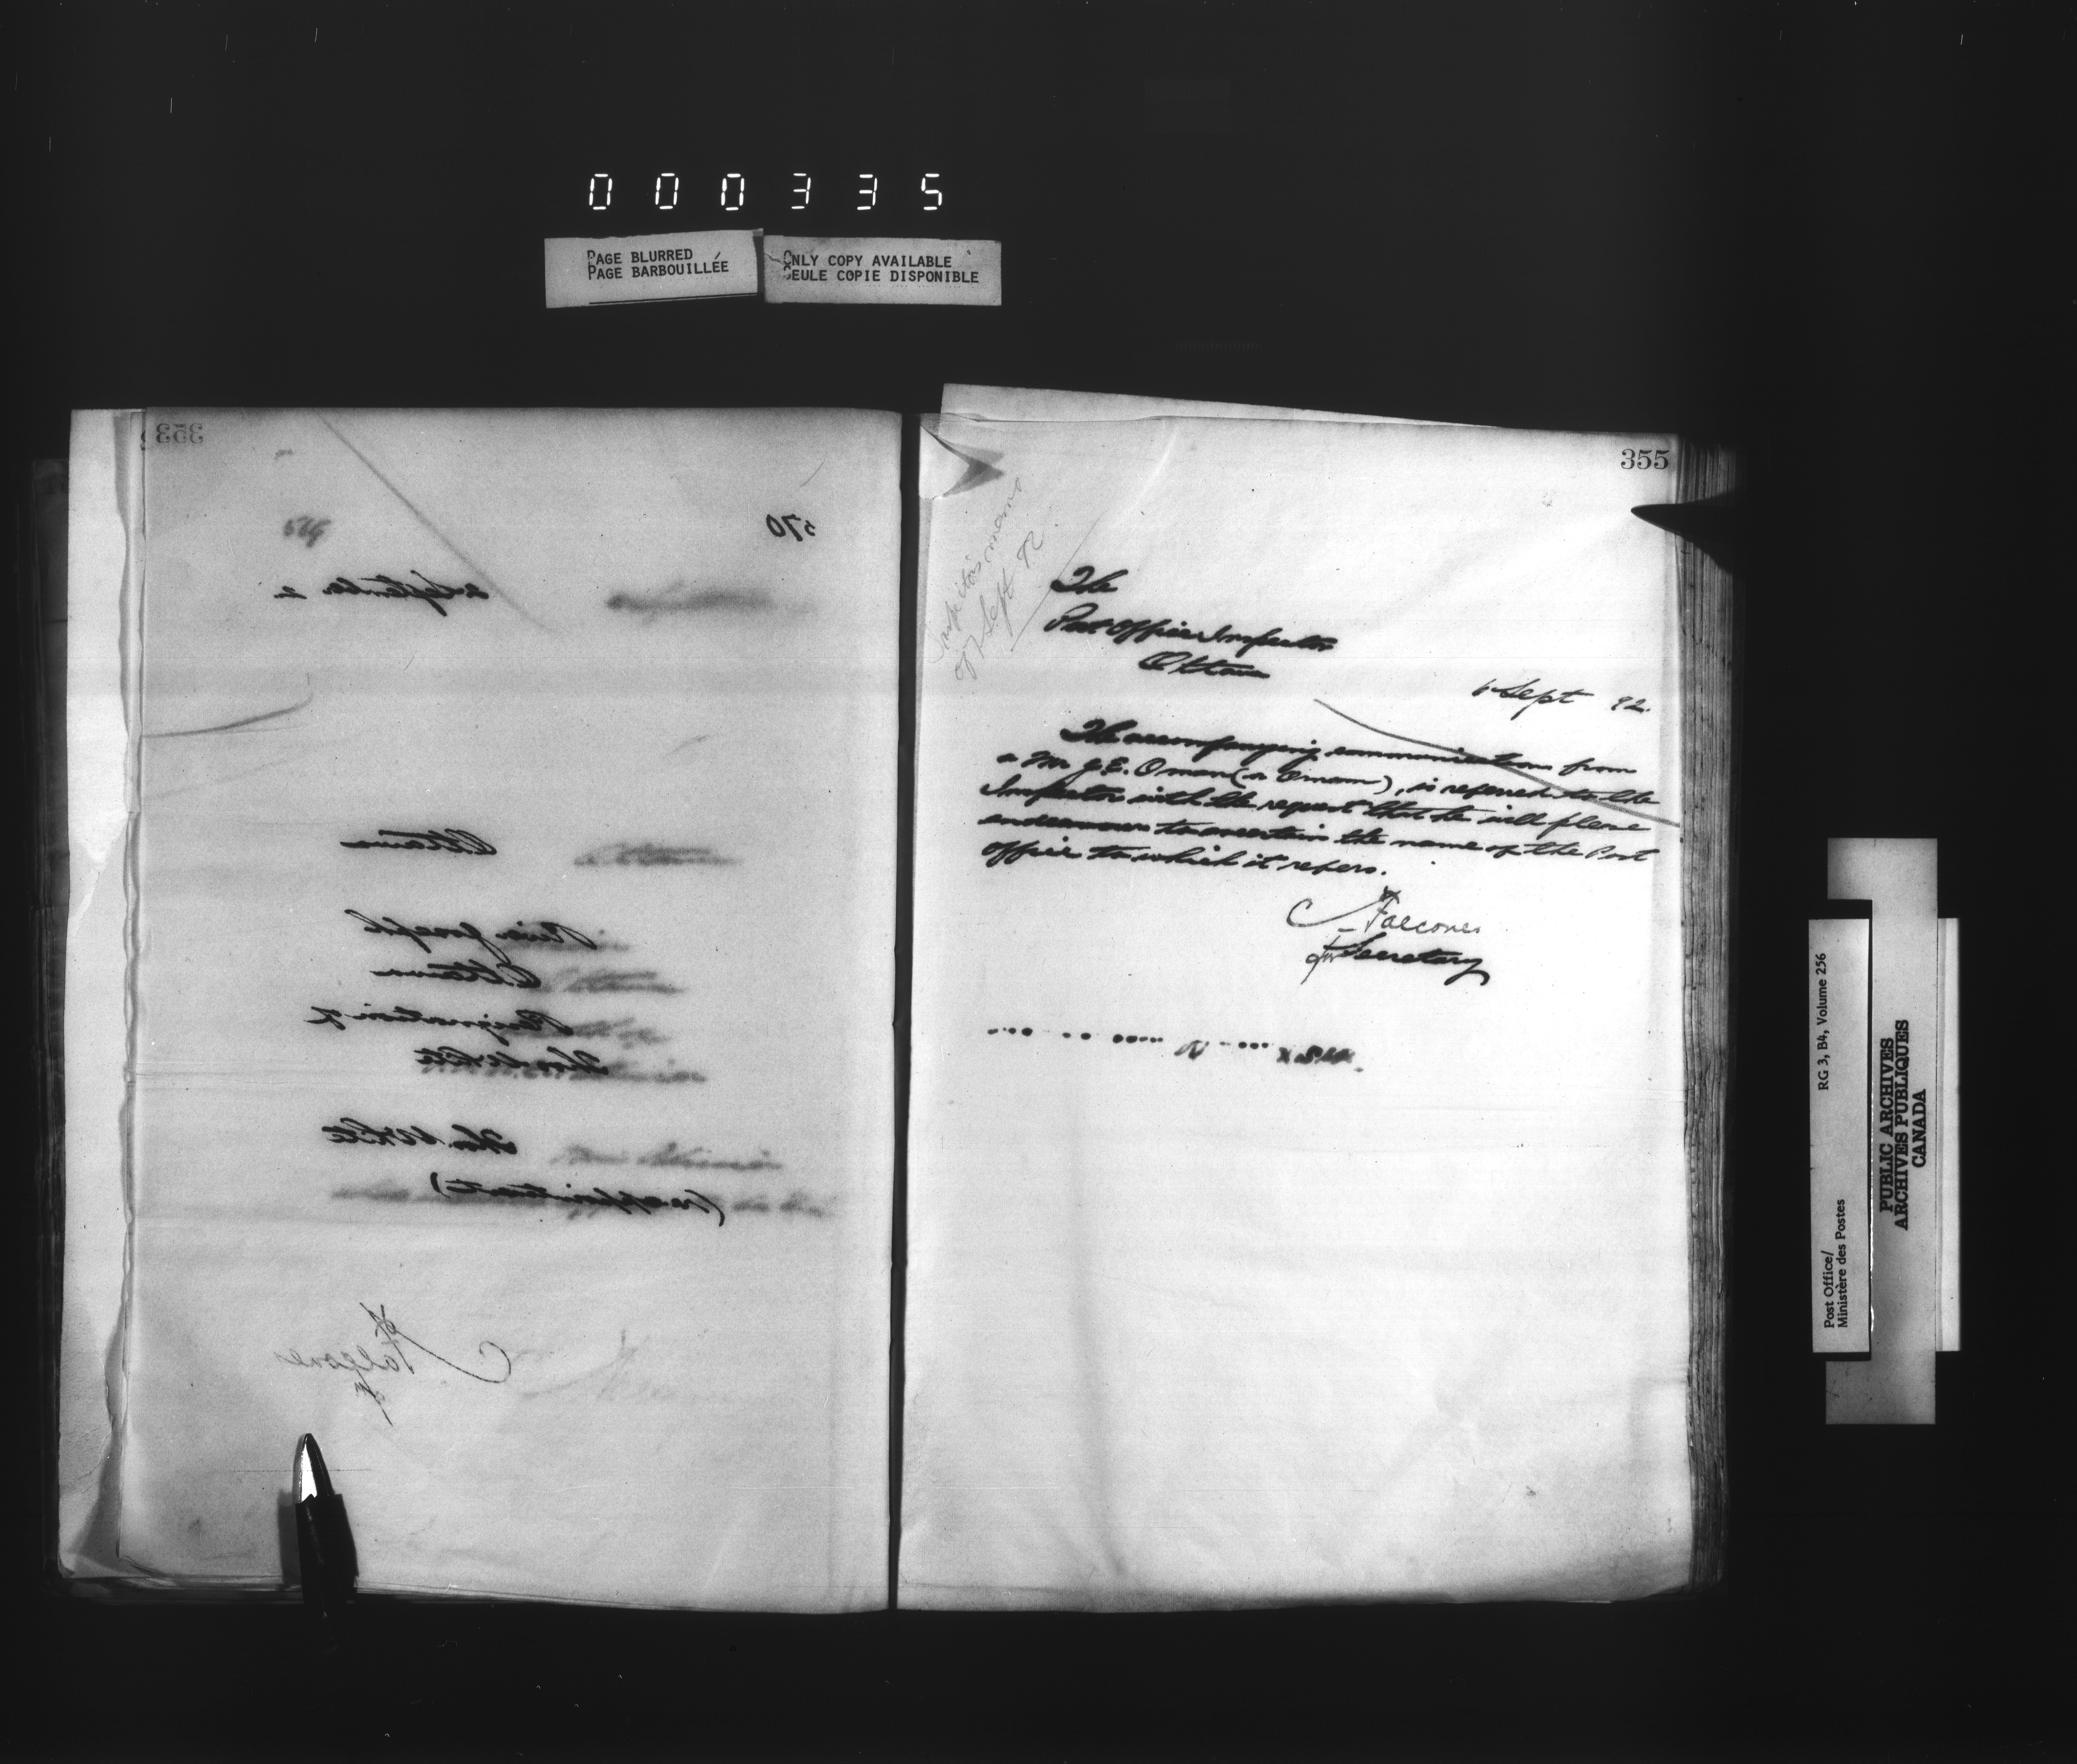 000335
PAGE BLURRED
PAGE BARBOUILLÉE
ONLY COPY AVAILABLE
SEULE COPIE DISPONIBLE
353
570
2 September 2
Ottawa
River Joseph
Ottawa
Resignation of
Thos White
Thos White
(reappointment)
355
Inspector's memo
of 7 Sept 92
The
Post Office Inspector
Ottawa
6 Sept 92.
The accompanying communication from
a Mr J.E. Oman (or Omann), is referred to the
Inspector with the request that he will please
endeavour to ascertain the name of the Post
office to which it refers.
Falconer
for Secretary
Post Office/
Ministère des Postes
RG 3, B4, Volume 256
PUBLIC ARCHIVES
ARCHIVES PUBLIQUES
CANADA